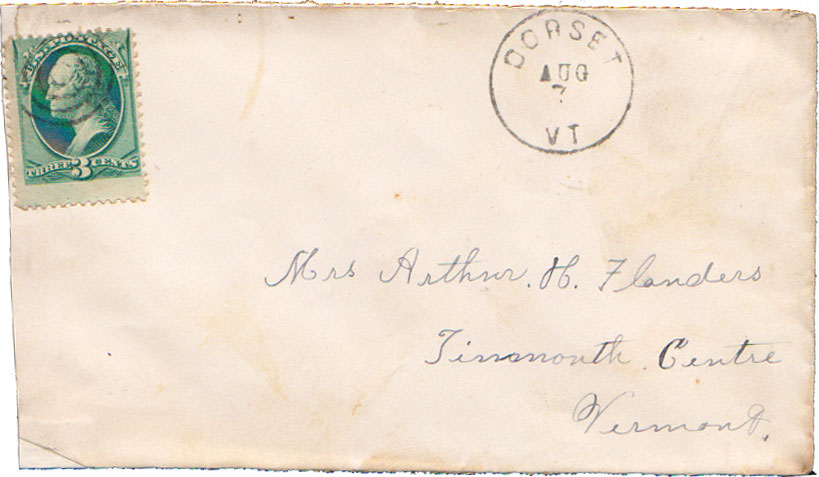 U.S. POSTAGE
THREE 3 CENTS
DORSET
AUG
7
VT
Mrs Arthur. H. Flanders
Tinmouth Centre
Vermont.